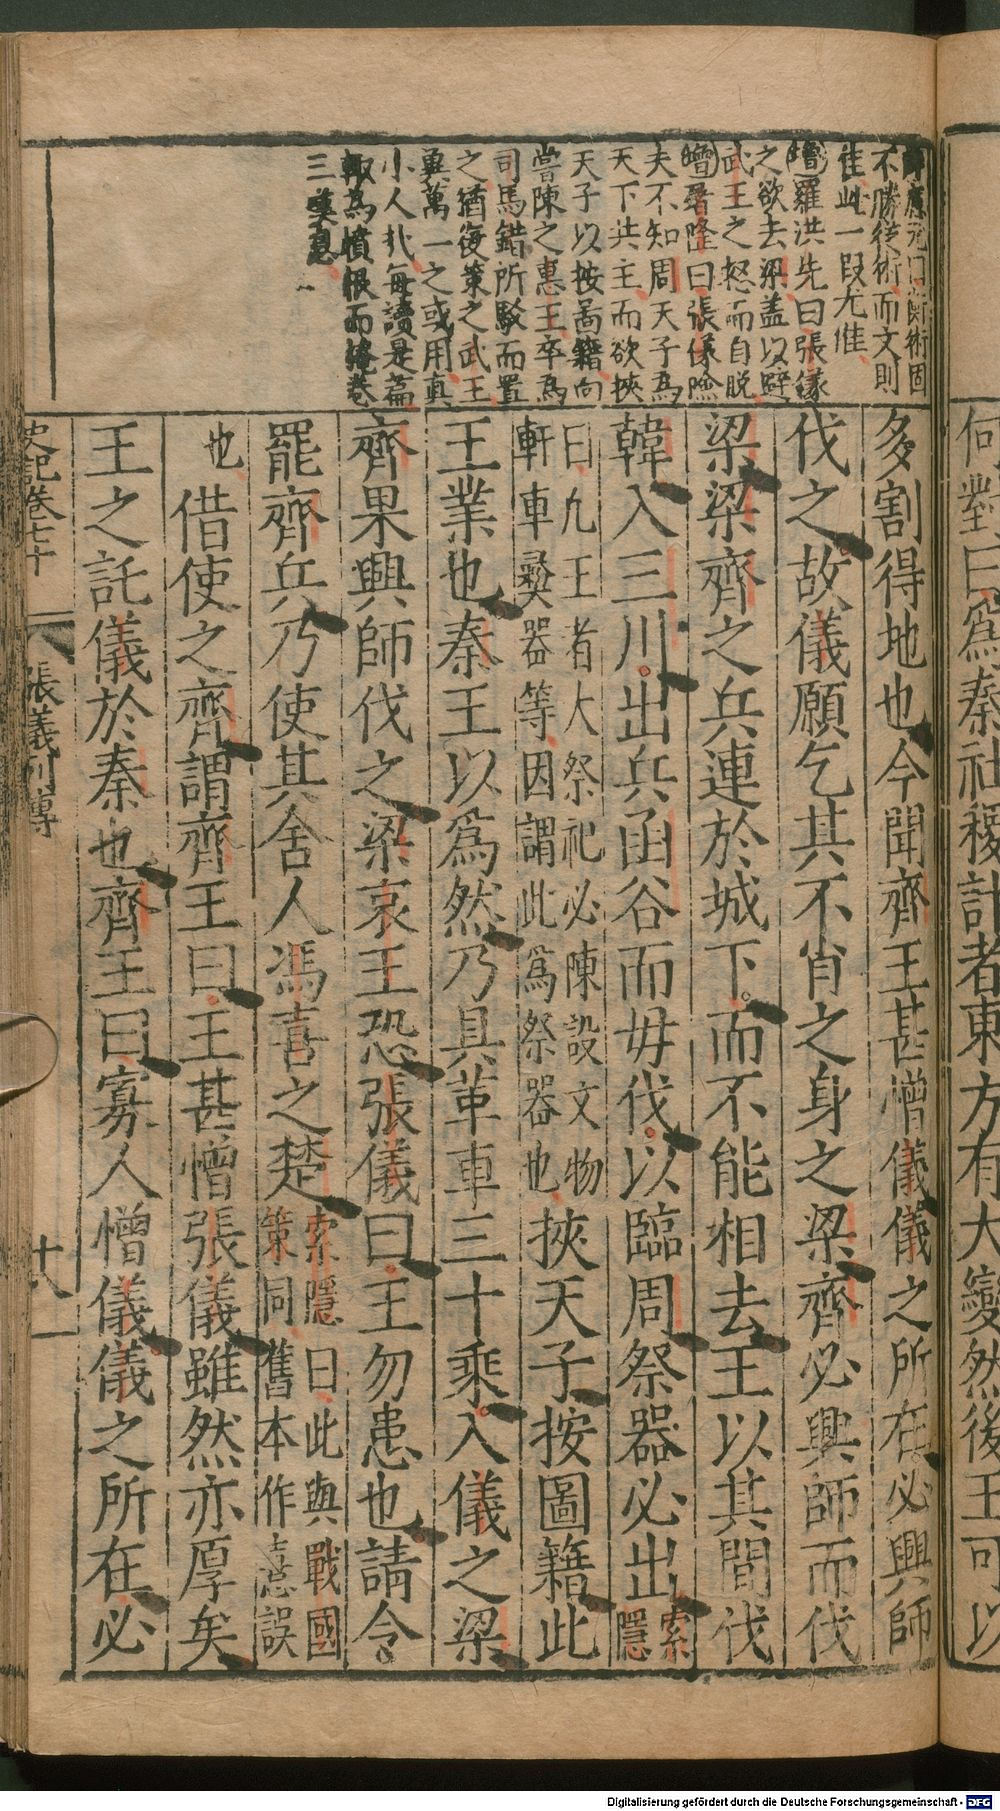 何對曰爲秦社稷計者東方有大變然後王可以
應元曰衡術固
不勝從術而文則
佳此一段尤佳
增羅洪先曰張儀
之欲去梁盖以避
武王之怒而自脫
增隆曰張儀
夫不知周天子爲
天下共主而欲挾
天子以按啚籍向
嘗陳之惠王卒爲
司馬錯所駁而置
之猶復策之武王
冀萬一之或用真
小人哉每讀是篇
輙爲憤恨而掩卷
三嘆息
多割得地也今聞齊王甚憎儀儀之所在必興師
伐之故儀願乞其不肖之身之梁齊必興師而伐
梁梁齊之兵連於城下而不能相去王以其間伐
韓入三川出兵函谷而毋伐以臨周祭器必出索隱
曰凡王者大祭祀必陳設文物
軒車彝器等因謂此爲祭器也挾天子按圖籍此
王業也秦王以爲然乃具革車三十乘入儀之梁
齊果興師伐之梁哀王恐張儀曰王勿患也請令
罷齊兵乃使其舍人馮喜之楚索隱曰此與戰國
策同舊本作憙誤
也借使之齊謂齊王曰王甚憎張儀雖然亦厚矣
王之託儀於秦也齊王曰寡人憎儀儀之所在必
史記卷七十
張儀列傳
十八
Digitalisierung gefördert durch die Deutsche Forschungsgemeinschaft - DFG